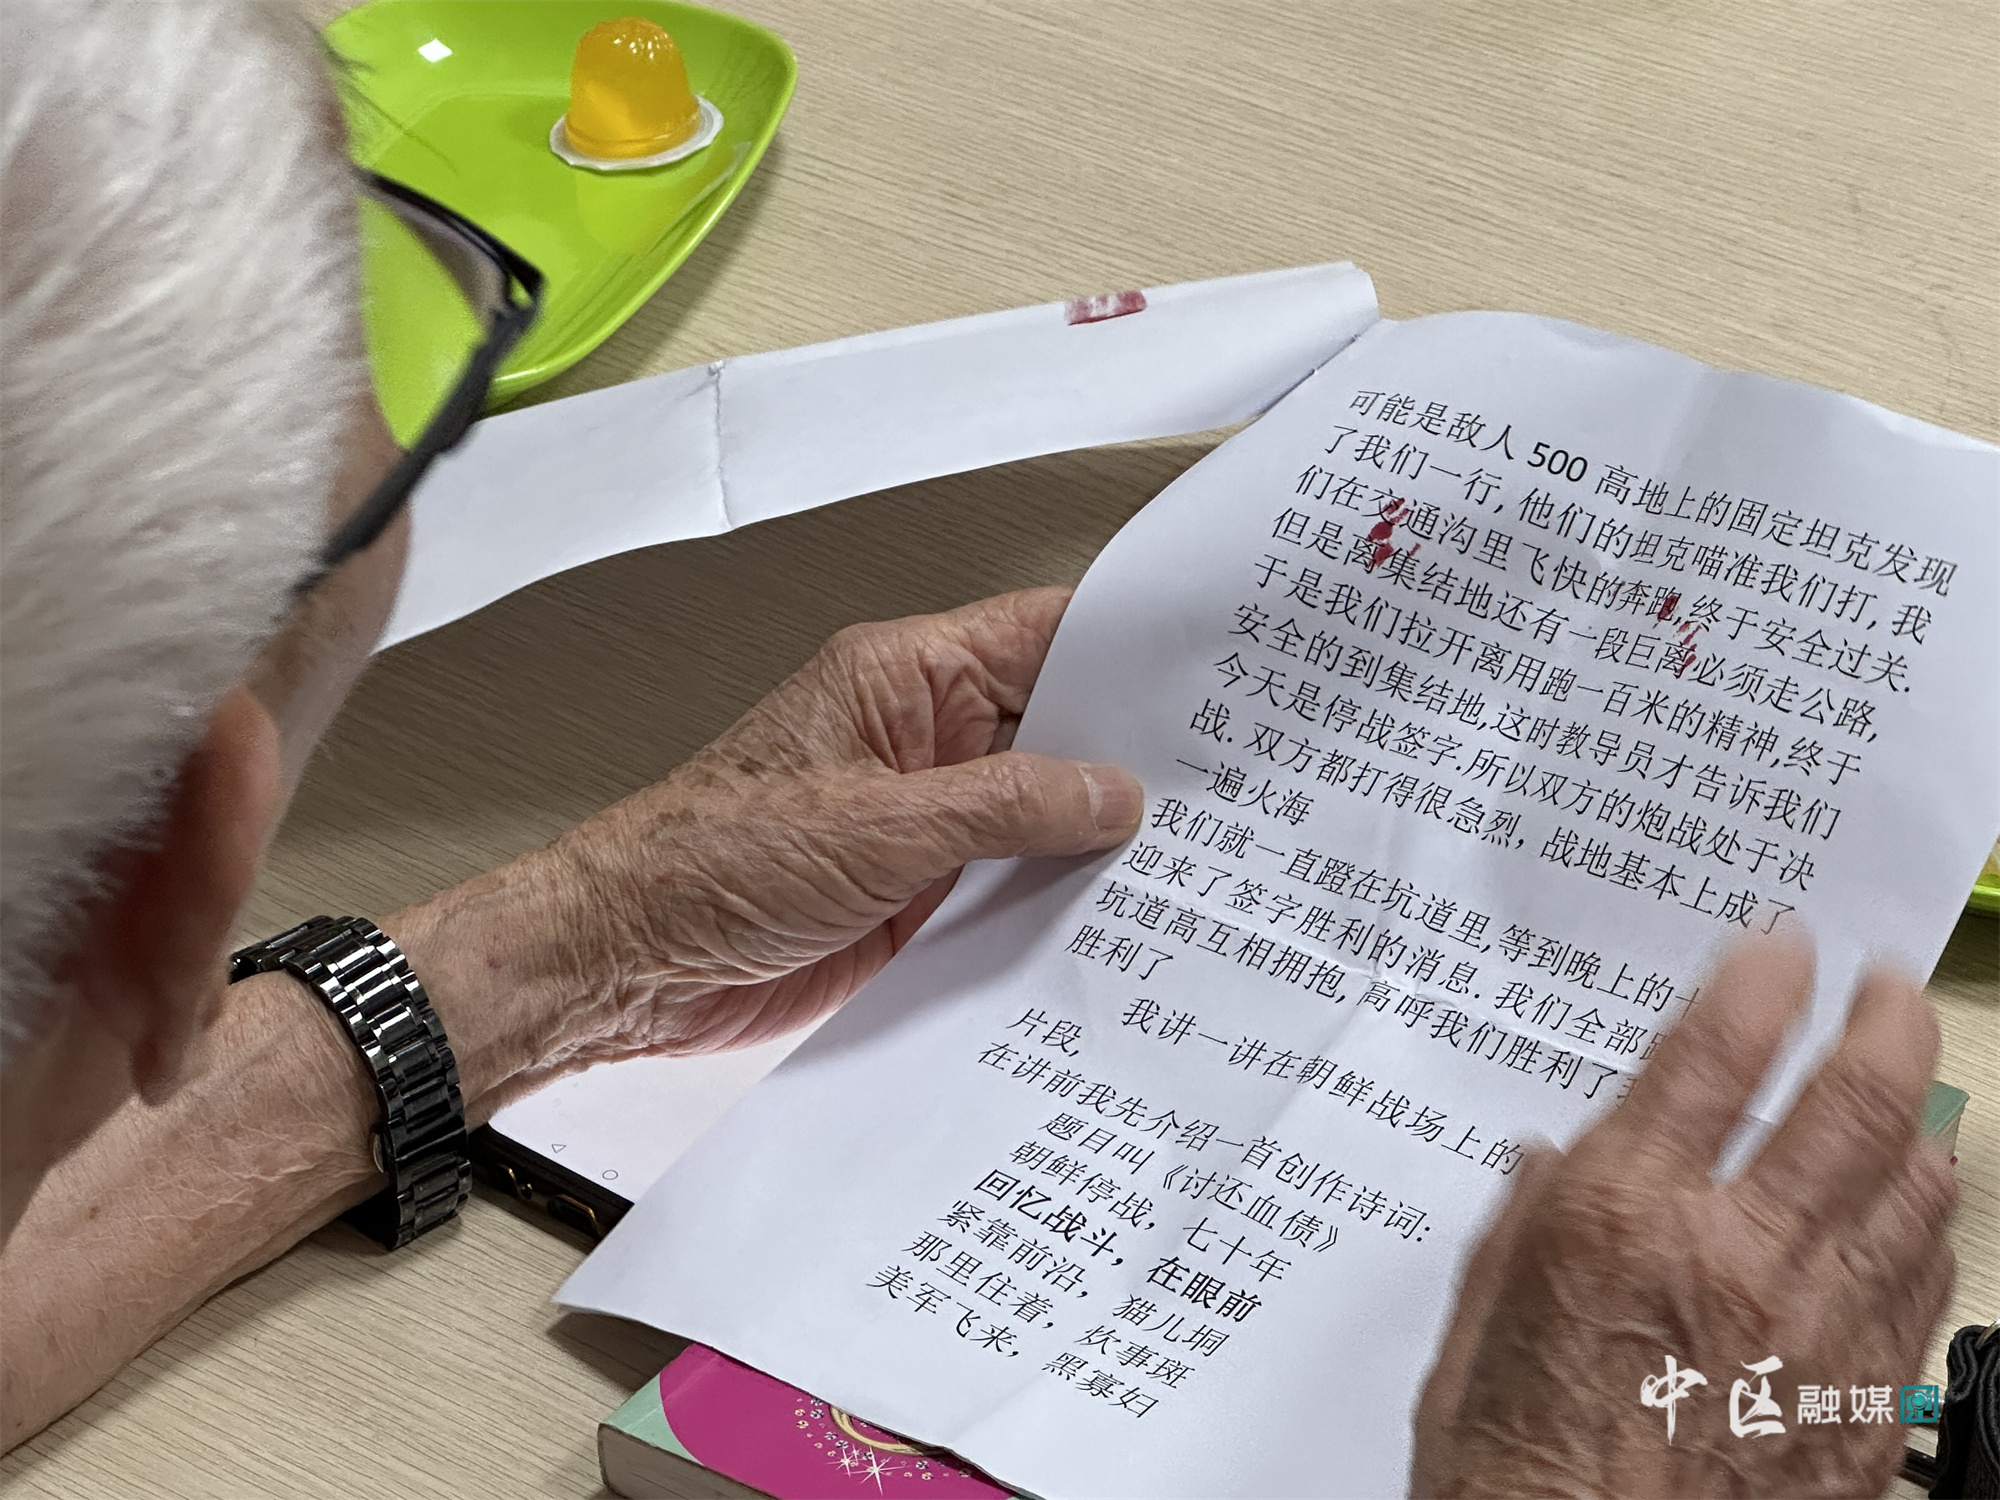 可能是敌人 500 高地上的固定坦克发现
了我们一行, 他们的坦克喵准我们打, 我
们在交通沟里飞快的奔跑,终于安全过关.
但是离集结地还有一段巨离必须走公路,
于是我们拉开离用跑一百米的精神,终于
安全的到集结地,这时教导员才告诉我们
今天是停战签字.所以双方的炮战处于决
战. 双方都打得很急烈，战地基本上成了
一遍火海
我们就一直蹬在坑道里,等到晚上的十
迎来了签字胜利的消息. 我们全部
坑道高互相拥抱, 高呼我们胜利了
胜利了
我讲一讲在朝鲜战场上的
片段,
在讲前我先介绍一首创作诗词:
题目叫《讨还血债》
朝鲜停战，七十年
回忆战斗，在眼前
紧靠前沿，猫儿垌
那里住着，炊事斑
美军飞来，黑寡妇
中区融媒